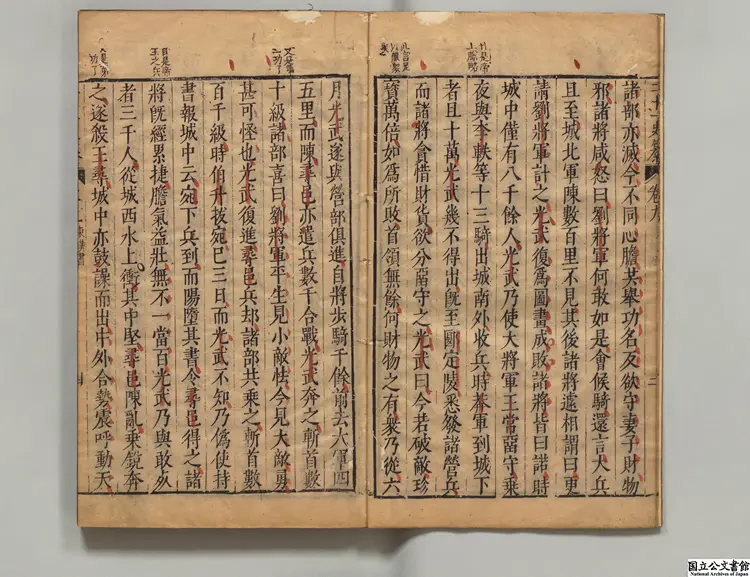 諸部亦滅今不同心膽共舉功名反欲守妻子財物
邪諸將咸怒曰劉將軍何敢如是會候騎還言大兵
且至城北軍陳數百里不見其後諸將遽相謂曰更
請劉將軍計之光武復爲圖畫成敗諸將皆曰諾時
城中僅有八千餘人光武乃使大將軍王常留守乘
夜與李軼等十三騎出城南外收兵時莾軍到城下
者且十萬光武幾不得出旣至郾定陵悉發諸營兵
而諸將貪惜財貨欲分留守之光武曰今若破敵珍
寶萬倍如爲所敗首領無餘何財物之有衆乃從六
月光武遂與營部俱進自將步騎千餘前去大軍四
五里而陳尋邑亦遣兵數千合戰光武奔之斬首數
十級諸部喜曰劉將軍平生見小敵怯今見大敵勇
甚可怪也光武復進尋邑兵却諸部共乘之斬首數
百千級時伯升拔宛已三日而光武不知乃僞使持
書報城中云宛下兵到而陽墮其書令尋邑得之諸
將旣經累捷膽氣益壯無不一當百光武乃與敢死
者三千人從城西水上衝其中堅尋邑陳亂乘銳奔
之遂殺王尋城中亦鼓譟而出中外合勢震呼動天
国立公文書館
National Archives of Japan